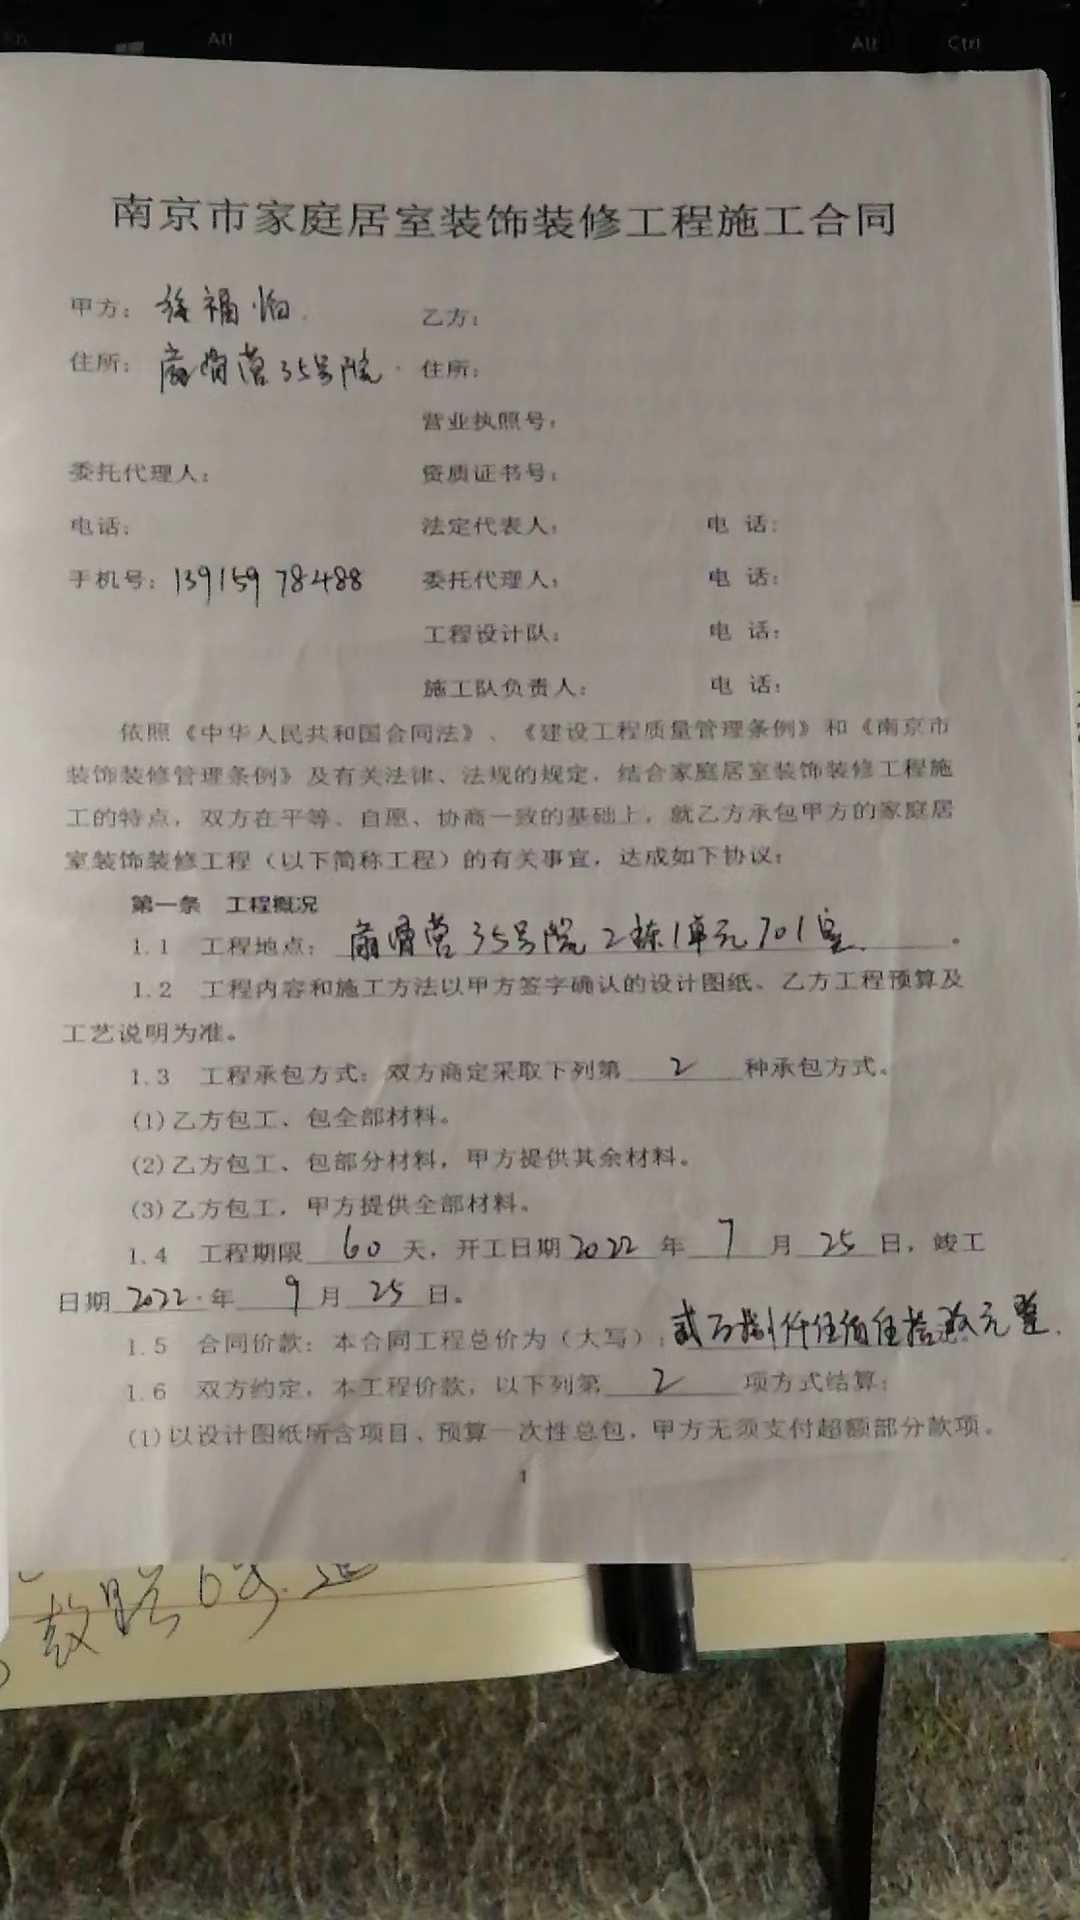 Alt
Alt Ctrl
南京市家庭居室装饰装修工程施工合同
甲方： 福 乙方：
住所： 营35号院 住所：
营业执照号：
委托代理人： 资质证书号：
电话： 法定代表人： 电 话：
手机号：13915978488 委托代理人： 电 话：
工程设计队： 电 话：
施工队负责人： 电 话：
依照《中华人民共和国合同法》、《建设工程质量管理条例》和《南京市
装饰装修管理条例》及有关法律、法规的规定，结合家庭居室装饰装修工程施
工的特点，双方在平等、自愿、协商一致的基础上，就乙方承包甲方的家庭居
室装饰装修工程（以下简称工程）的有关事宜，达成如下协议：
第一条 工程概况
1.1 工程地点： 营35号院2栋1单元701室。
1.2 工程内容和施工方法以甲方签字确认的设计图纸、乙方工程预算及
工艺说明为准。
1.3 工程承包方式：双方商定采取下列第 2 种承包方式。
(1)乙方包工、包全部材料。
(2)乙方包工、包部分材料，甲方提供其余材料。
(3)乙方包工，甲方提供全部材料。
1.4 工程期限 60 天，开工日期 2022 年 7 月 25 日，竣工
日期 2022 年 9 月 25 日。
1.5 合同价款：本合同工程总价为（大写）：贰万捌仟伍佰伍拾 元整.
1.6 双方约定，本工程价款，以下列第 2 项方式结算：
(1)以设计图纸所含项目、预算一次性总包，甲方无须支付超额部分款项。
1